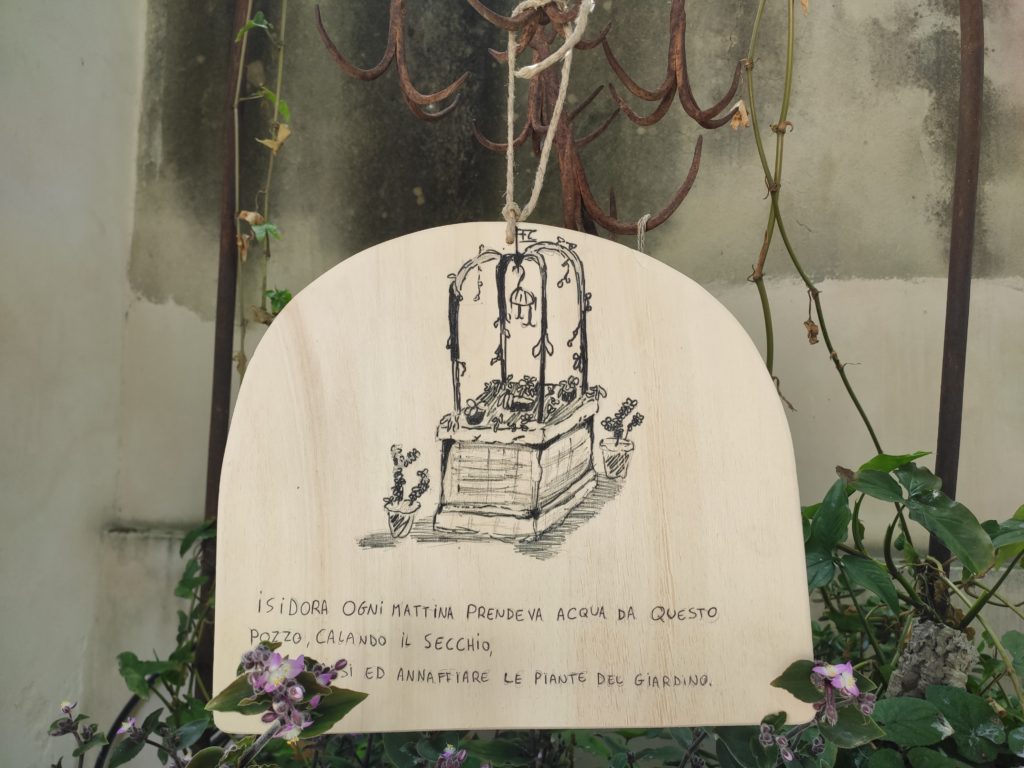 ISIDORA OGNI MATTINA PRENDEVA ACQUA DA QUESTO
POZZO, CALANDO IL SECCHIO,
ED ANNAFFIARE LE PIANTE DEL GIARDINO.